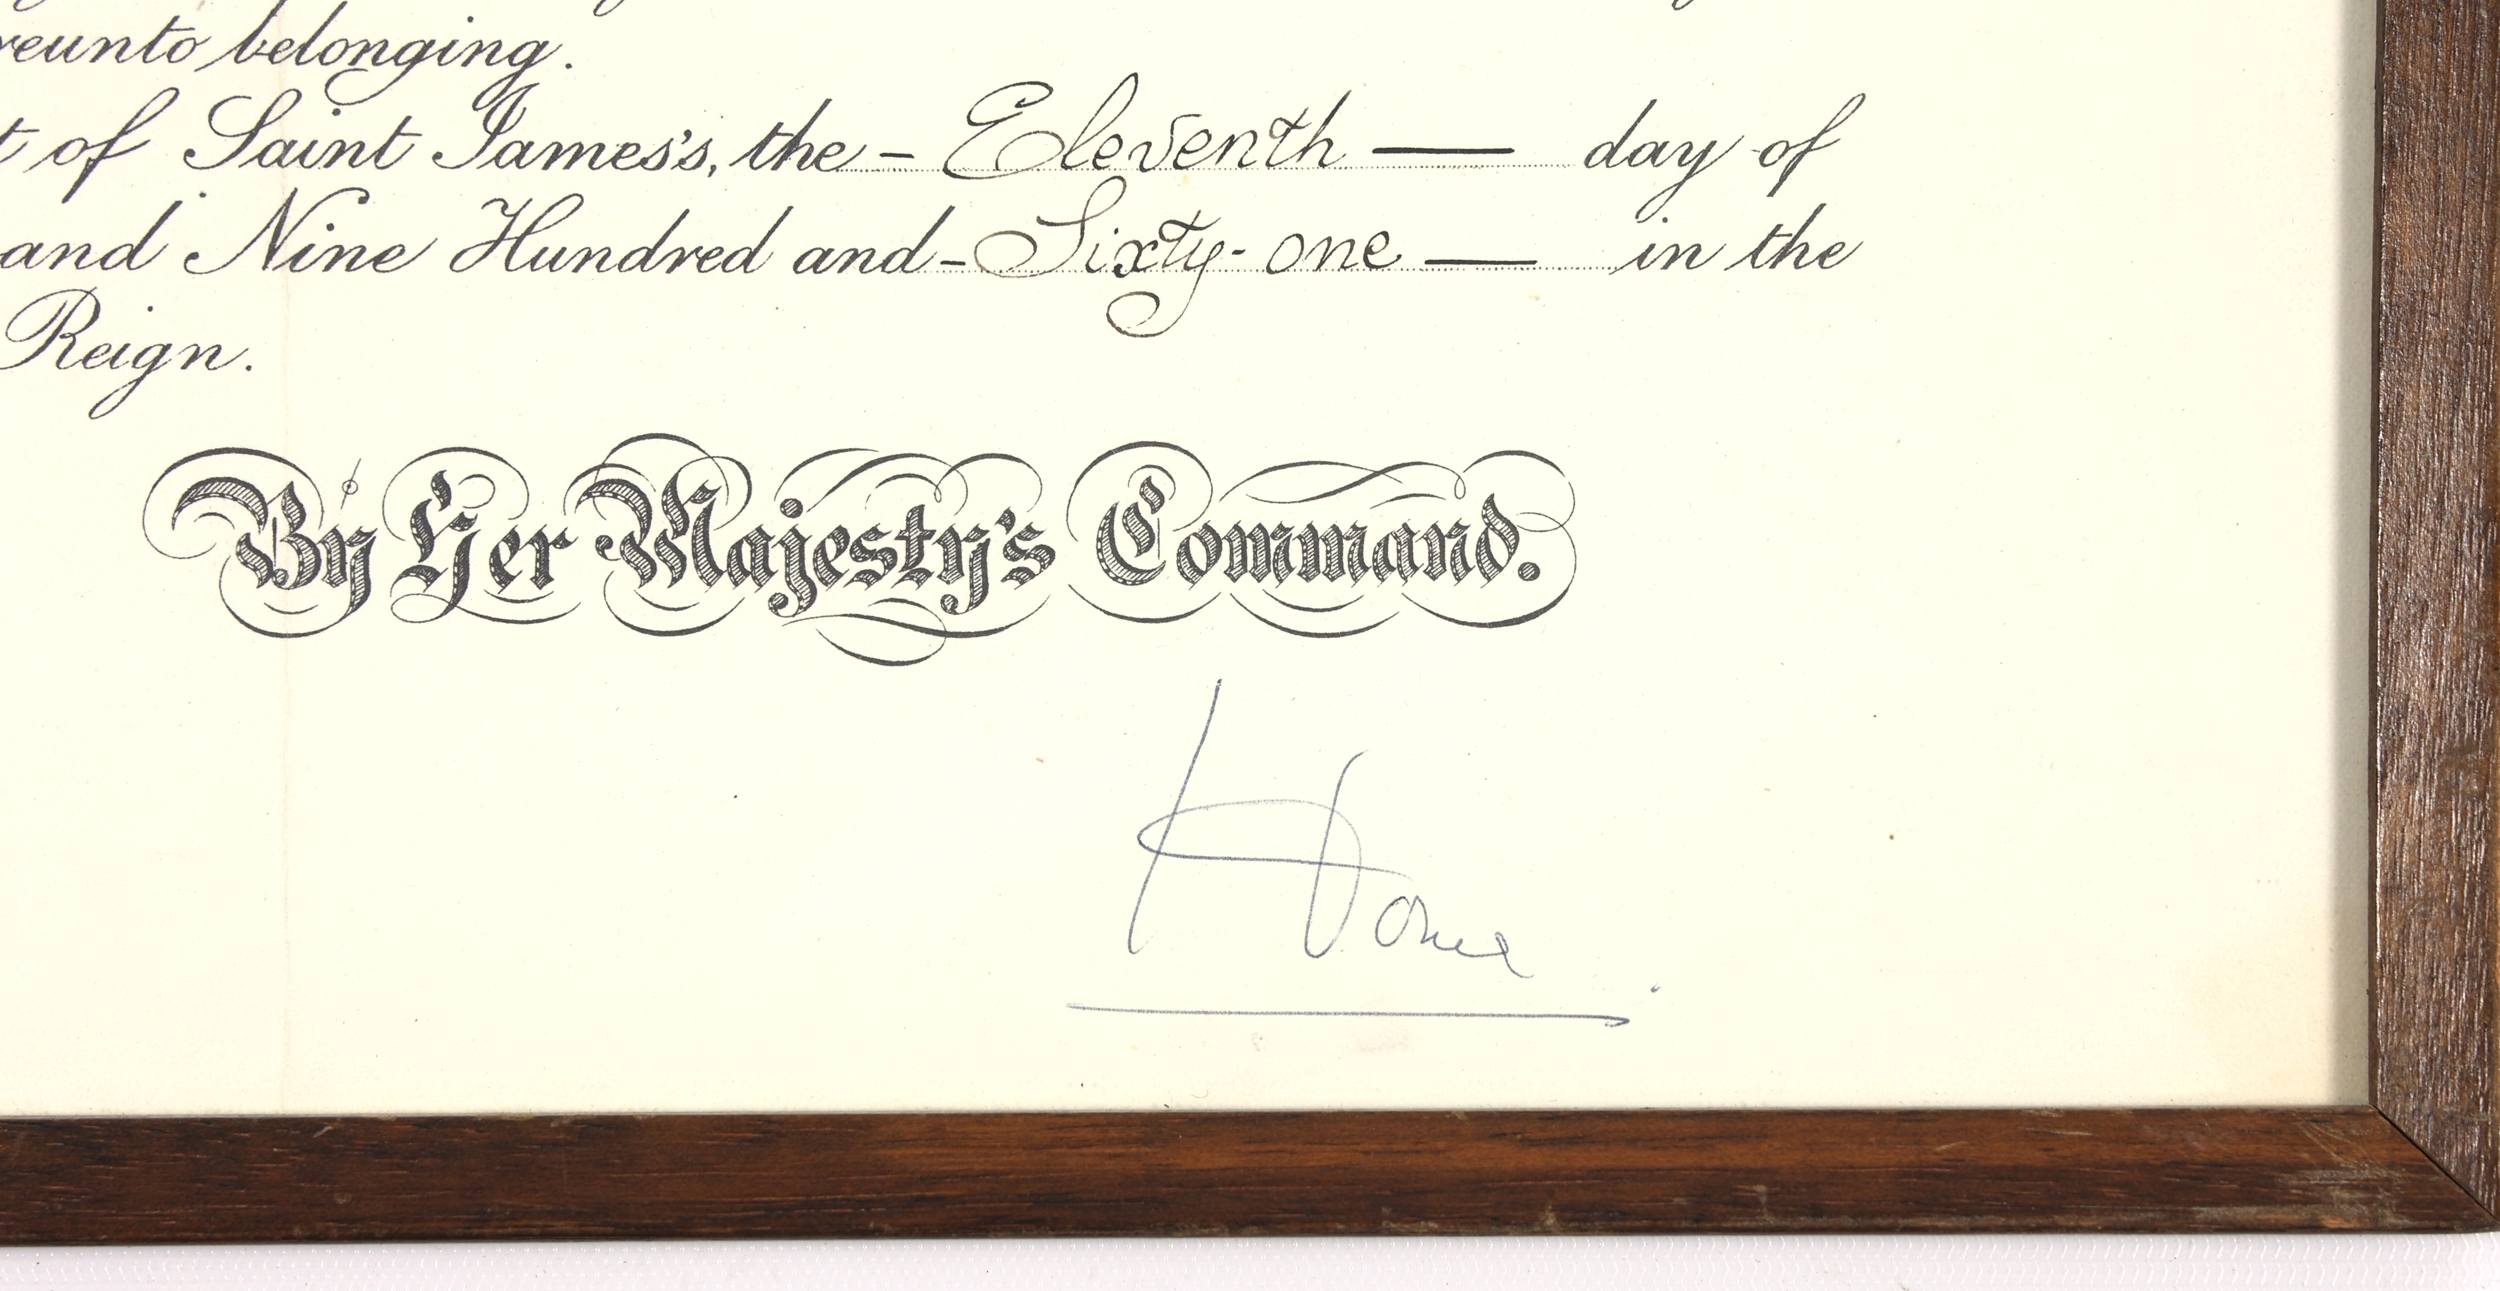 reunto belonging.
t of Saint James's, the - Eleventh — day of
and Nine Hundred and - Sixty-one — in the
Reign.
By Her Majesty's Command.
Home